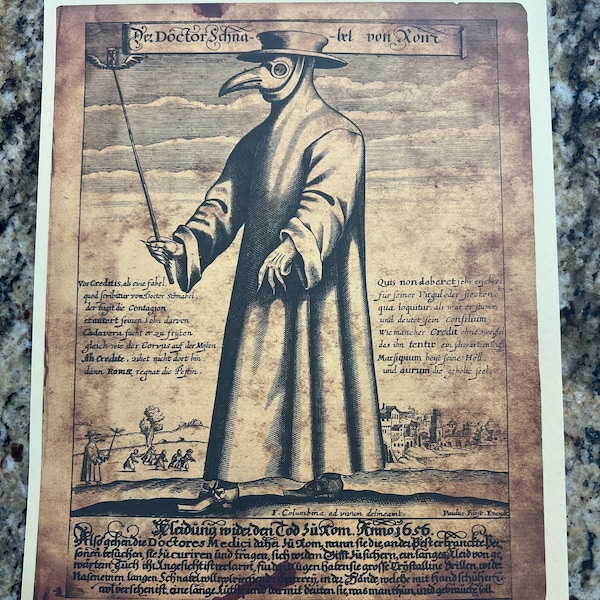 Der Doctor Schna- bel von Rom
Vos Creditis, als eine fabel,
quod scribitur vom Doctor Schnabel
der fugit die Contagion
et aufert seinen Lohn darvon
Cadavera sucht er zu fristen
gleich wie der Corvus auf der Misten
Ah Credite, ziehet nicht dort hin
dann Romæ regnat die Pestin.
Quis non deberet sehr erschrecken
für seiner Virgul oder stecken
qua loquitur, als wär er stumm
und deutet sein Consilium
Wie mancher Credit ohne zweifel
das ihn tentir ein schwartzen teufl
Marsupium heist seine Höll
und aurum die geholte seel.
I. Columbina, ad vivum delineavit. Paulus Fürst Excud
Kleidung wider den Tod zu Rom. Anno 1656.
Also gehen die Doctores Medici daher zu Rom, wann sie die ander Pest erkranckte Per-
sonen besuchen, sie zu curiren und tragen, sich widern Gifft zu sichern, ein langes Kleid von ge-
wäxtem Tuch ihr Angesicht ist verlarvt, für den Augen haben sie grosse Crystalline Brillen, wider
Nasen einen langen Schnabel voll wolriechender Specerey, in der Hände, welche mit Handschuher
wol versehen ist, eine lange Ruthe und darmit deuten sie, was man thun, und gebrauche soll